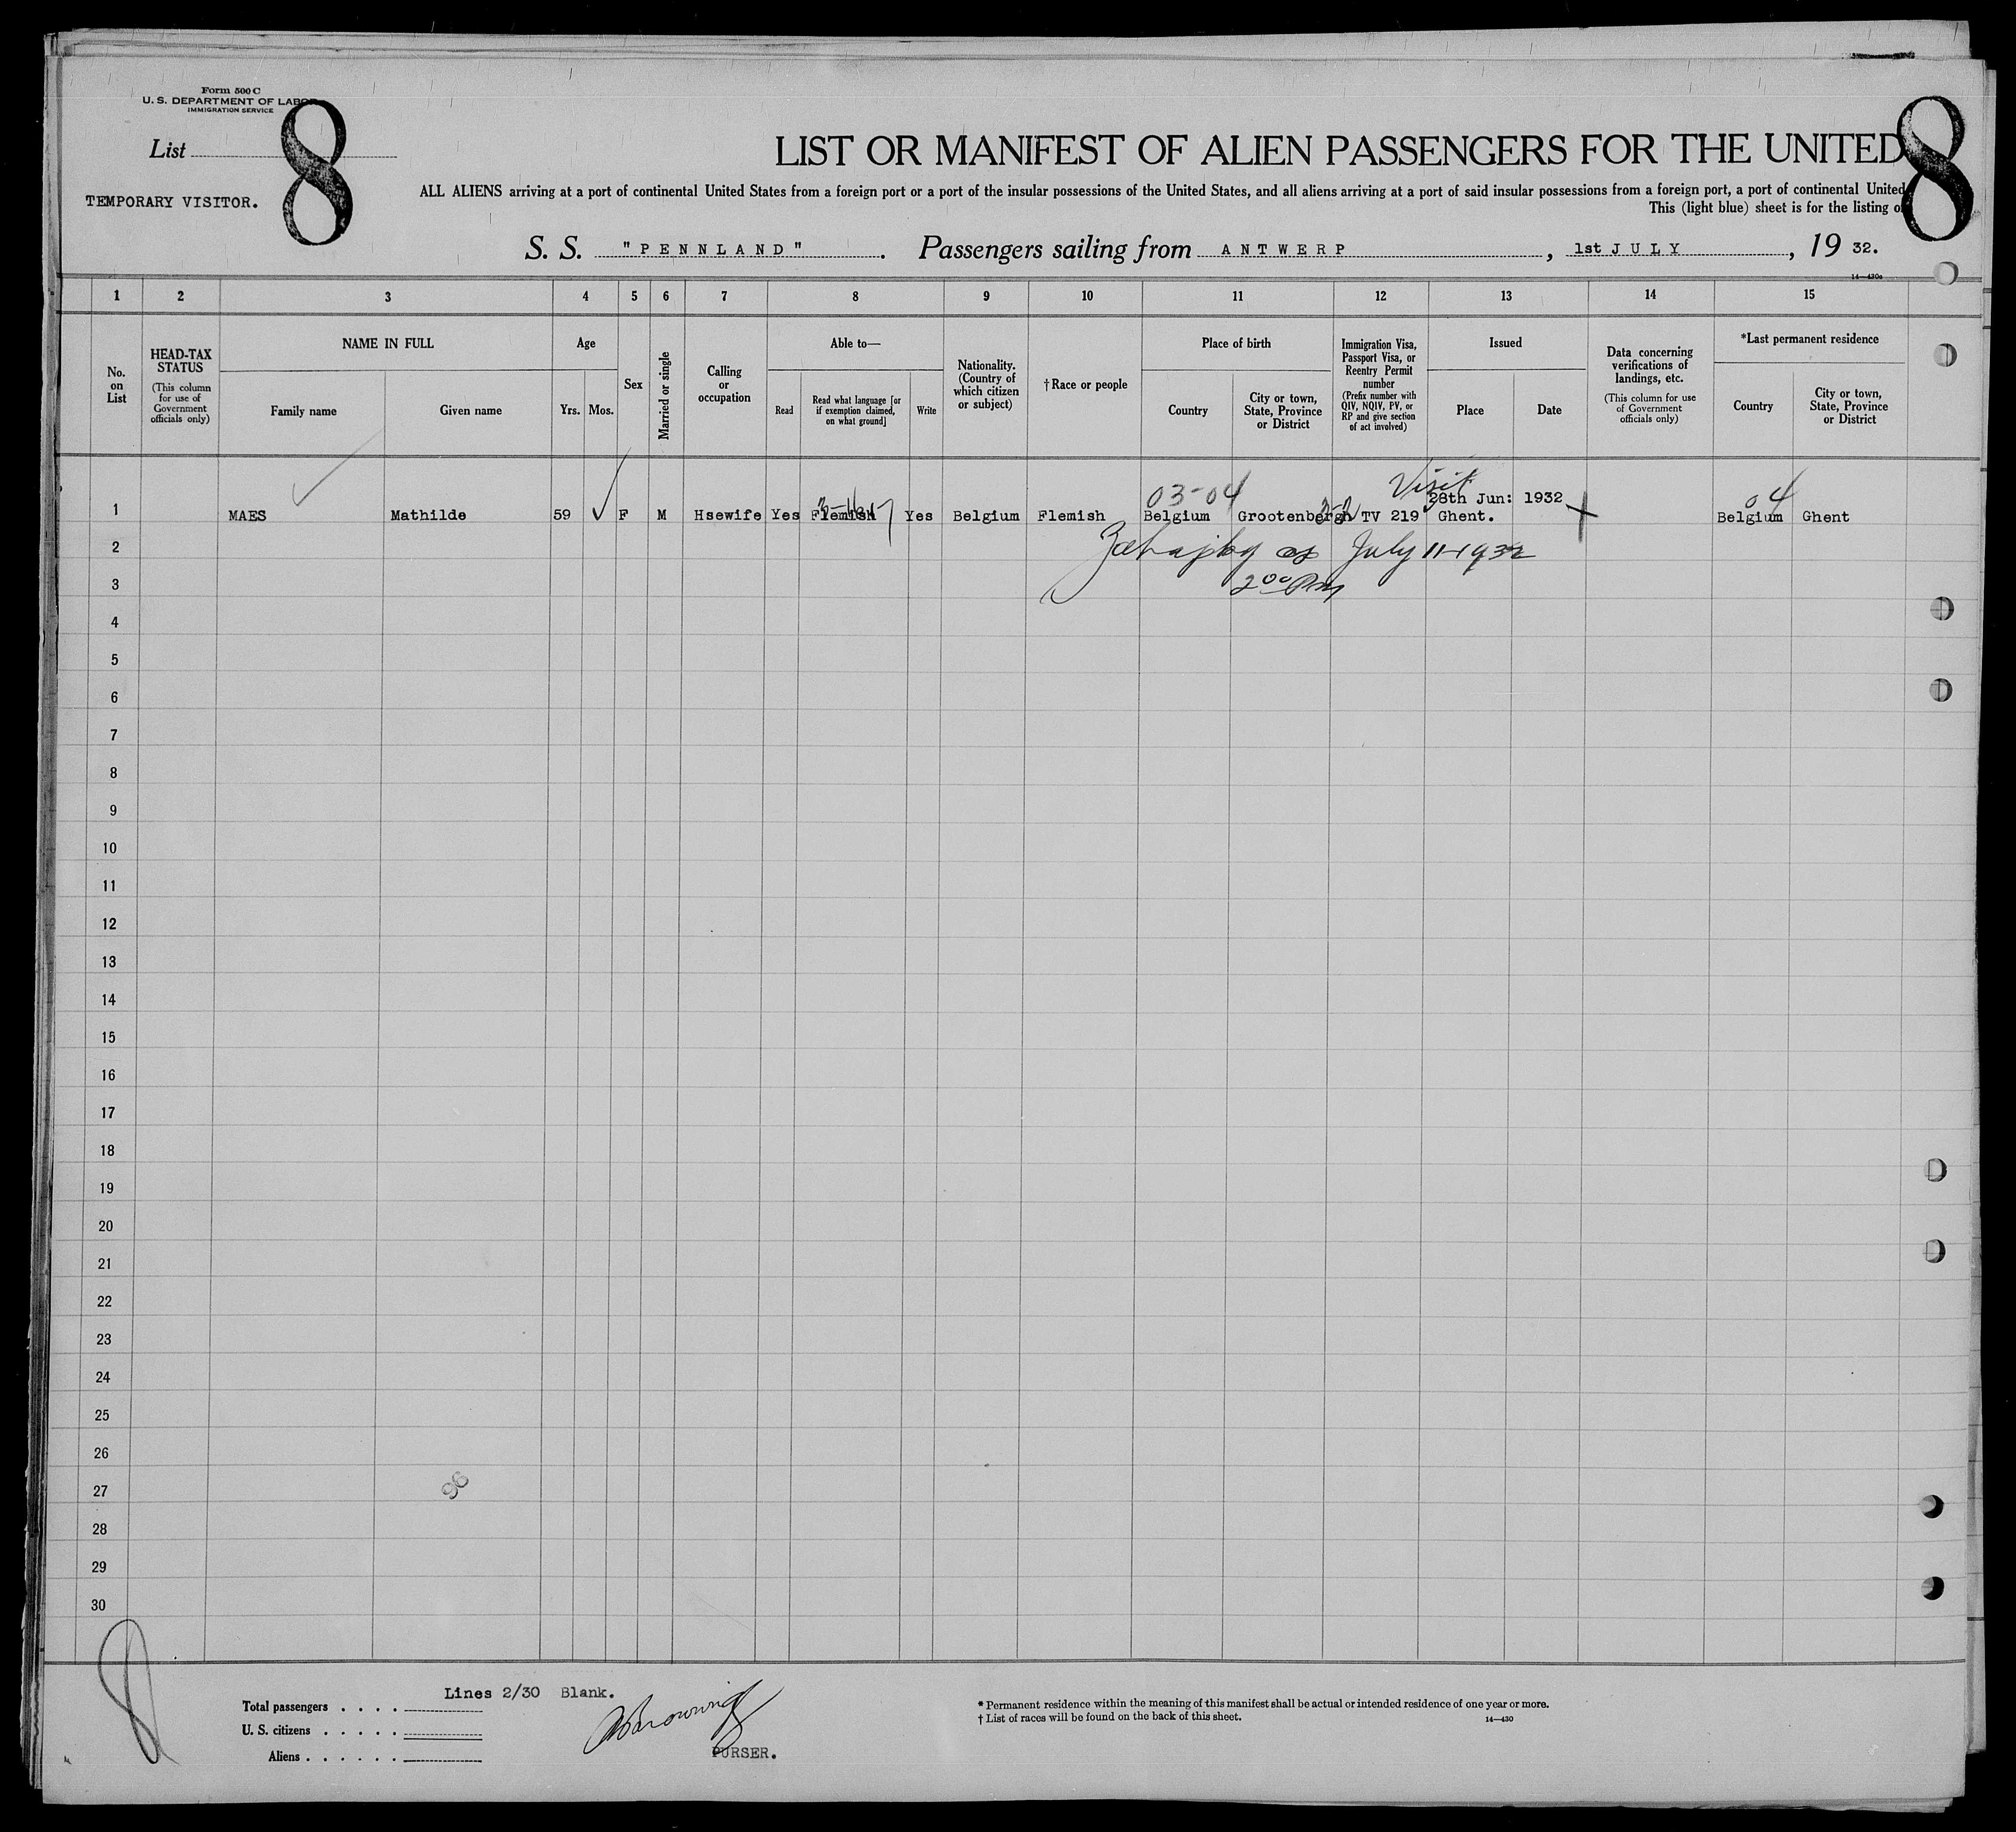 Form 500 C
U. S. DEPARTMENT OF LABOR
IMMIGRATION SERVICE
List 8
TEMPORARY VISITOR.
8
LIST OR MANIFEST OF ALIEN PASSENGERS FOR THE UNITED
ALL ALIENS arriving at a port of continental United States from a foreign port or a port of the insular possessions of the United States, and all aliens arriving at a port of said insular possessions from a foreign port, a port of continental United
This (light blue) sheet is for the listing o
S. S. "PENNLAND". Passengers sailing from ANTWERP, 1st JULY, 19 32.
14—430a
1 2 3 4 5 6 7 8 9 10 11 12 13 14 15
No. on List
HEAD-TAX STATUS
(This column for use of Government officials only)
NAME IN FULL
Family name
Given name
Age
Yrs. Mos.
Sex
Married or single
Calling or occupation
Able to—
Read
Read what language [or if exemption claimed, on what ground]
Write
Nationality. (Country of which citizen or subject)
† Race or people
Place of birth
Country
City or town, State, Province or District
Immigration Visa, Passport Visa, or Reentry Permit number
(Prefix number with QIV, NQIV, PV, or RP and give section of act involved)
Issued
Place
Date
Data concerning verifications of landings, etc.
(This column for use of Government officials only)
*Last permanent residence
Country
City or town, State, Province or District
03-04 Visit 04
28th Jun: 1932
1 MAES Mathilde 59 F M Hsewife Yes Flemish Yes Belgium Flemish Belgium Grootenbergh TV 219 Ghent. Belgium Ghent
2 July 11-1932
3 2 00 PM
4
5
6
7
8
9
10
11
12
13
14
15
16
17
18
19
20
21
22
23
24
25
26
27 96
28
29
30
Lines 2/30 Blank.
Total passengers
U. S. citizens
Aliens
PURSER.
* Permanent residence within the meaning of this manifest shall be actual or intended residence of one year or more.
† List of races will be found on the back of this sheet.
14—430